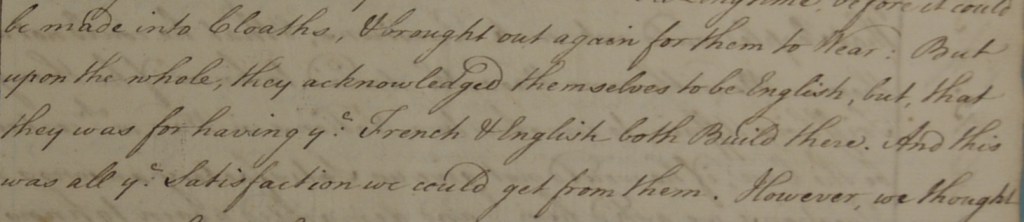 Longtime, before it could
be made into Cloaths, & brought out again for them to Wear: But
upon the whole, they acknowledged themselves to be English, but, that
they was for having yᵉ: French & English both Build there. And this
was all yᵉ: Satisfaction we could get from them. However, we thought